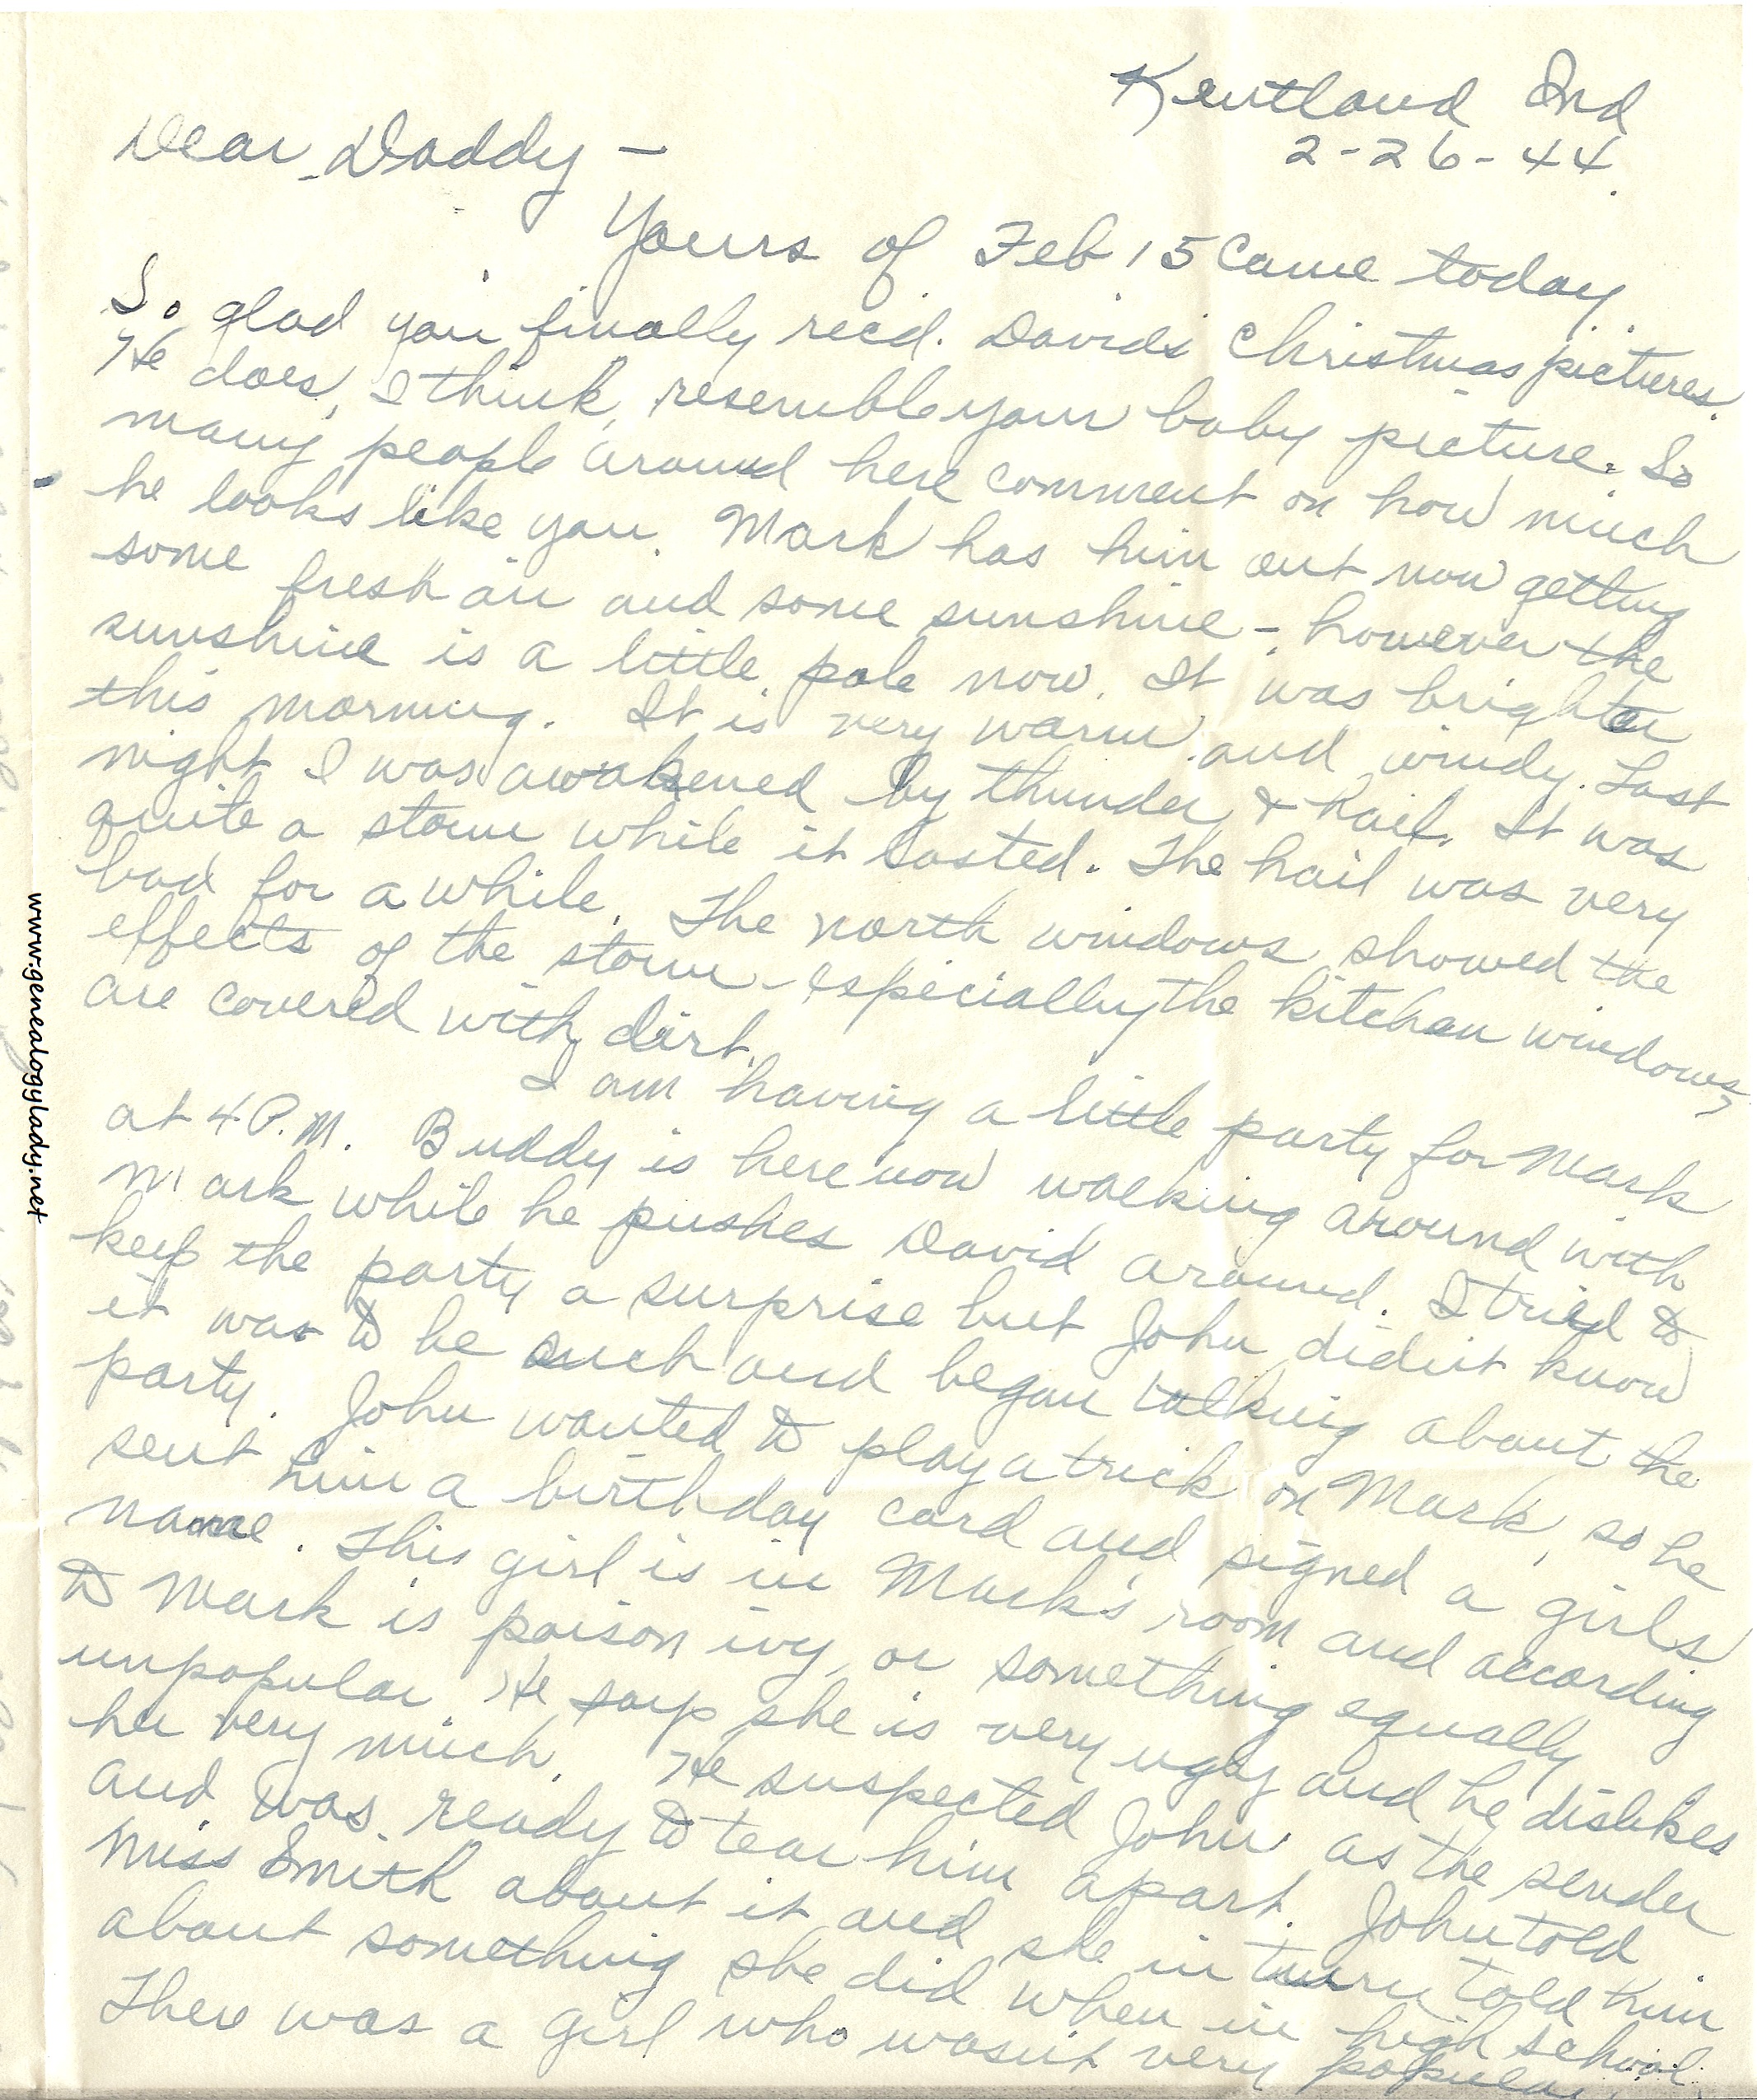 Kentland Ind
2-26-44.
Dear Daddy —
Yours of Feb 15 came today.
So glad you finally recd. David's Christmas pictures.
He does, I think, resemble your baby picture. So
many people around here comment on how much
he looks like you. Mark has him out now getting
some fresh air and some sunshine - however the
sunshine is a little pale now. It was brighter
this morning. It is very warm and windy. Last
night I was awakened by thunder & hail. It was
quite a storm while it lasted. The hail was very
bad for a while. The north windows showed the
effects of the storm - especially the kitchen windows,
are covered with dirt.
I am having a little party for Mark
at 4 P.M. Buddy is here now walking around with
Mark while he pushes David around. I tried to
keep the party a surprise but John didn't know
it was to be such and began talking about the
party. John wanted to play a trick on Mark, so he
sent him a birthday card and signed a girls
name. This girl is in Mark's room and according
to Mark is poison ivy, or something equally
unpopular. He says she is very ugly and he dislikes
her very much. He suspected John as the sender
and was ready to tear him apart. John told
Miss Smith about it and she in turn told him
about something she did when in high school.
There was a girl who wasn't very popular.
www.genealogylady.net